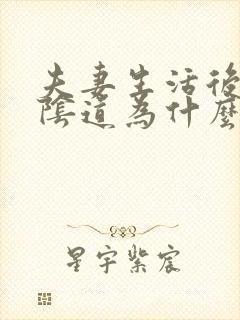 夫妻生活後
陰道為什麼
星宇紫宸